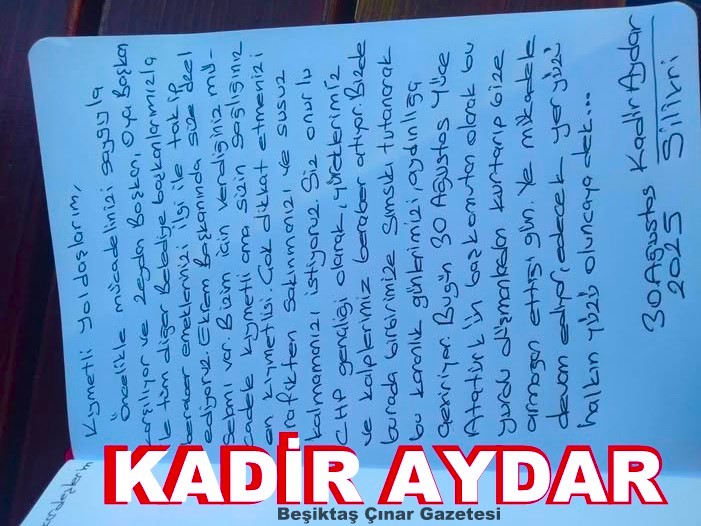 Kıymetli Yoldaşlarım,
Öncelikle mücadelenizi saygıyla
karşılıyor ve Zeydan Başkan, Oya Başkan
ile tüm diğer Belediye başkanlarımızla
beraber emeklerinizi ilgi ile takip
ediyoruz. Ekrem Başkanında size özel
selamı var. Bizim için verdiğiniz mü-
cadele kıymetli ama sizin sağlığınız
en kıymetlisi. Çok dikkat etmenizi
rafikten sakınmanızı ve susuz
kalmamanızı istiyoruz. Siz onurlu
CHP gençliği olarak, yüreklerimiz
ve kalplerimiz beraber atıyor. Bizde
burada birbirimize sımsıkı tutunarak
bu karanlık günlerimizi, aydınlığa
çeviriyor. Bugün 30 Ağustos Yüce
Atatürk'ün başkomutan olarak bu
yurdu düşmanlardan kurtarıp bize
armağan ettiği gün. Ve mücadele
devam ediyor, edecek yer yüzü
halkın yüzü oluncaya dek...
30 Ağustos Kadir Aydar
2025 Silivri
KADİR AYDAR
Beşiktaş Çınar Gazetesi